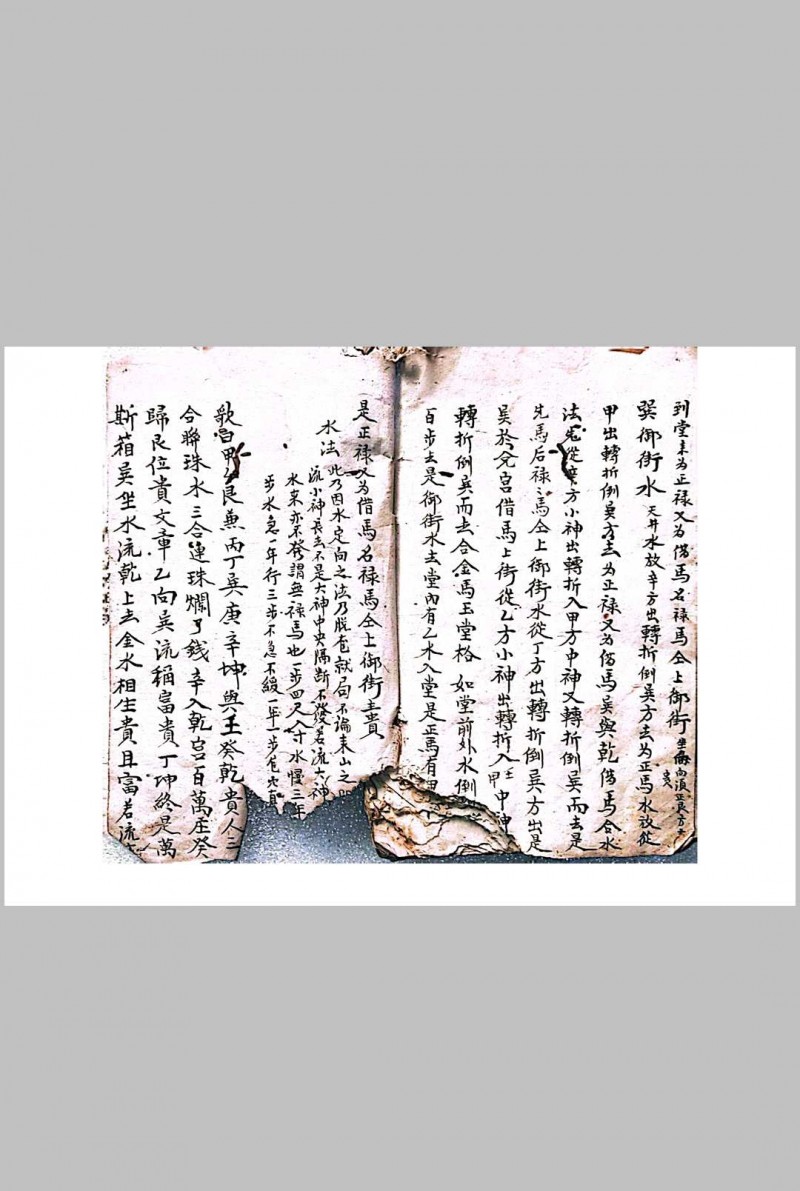 到堂来为正禄又为借馬名禄馬仝上御街
巽御街水 天井水放辛方出轉折倒巽方去为正馬水放從
甲出轉折倒巽方去为正禄又为借馬巽與乾借馬合水
法 從 方小神出轉折入甲方中神又轉折倒巽而去是
先馬后禄禄馬仝上御街水從丁方出轉折倒巽方出是
巽於兌宫借馬上街從乙方小神出轉折入甲中神
轉折倒巽而去合金馬玉堂格 如堂前外水倒
百步去是御街水去堂内有乙水入堂是正馬有
是正禄又为借馬名禄馬仝上御街主貴
水法 此乃因水定向之法乃脱龙就局不論来山之
流小神長去不是大神中央隔断不發若流大神
水来亦不發謂無禄馬也一步四尺八寸水慢三年
步水急一年行三步不急不緩一年一步
歌曰甲 艮兼丙丁巽庚辛坤與壬癸乾貴人三
合聯珠水三合連珠爛了錢辛入乾宫百萬庄癸
歸艮位貴文章乙向巽流稱富貴丁坤終是萬
斯箱巽坐水流乾上去金水相生貴且富若流